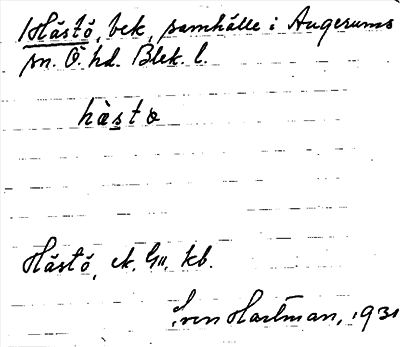 Hästö, bek, samhälle i Augerums
sn. Ö. hd. Blek. l.
hàstö
Hästö, ek. kb.
Sven Hartman, 1931